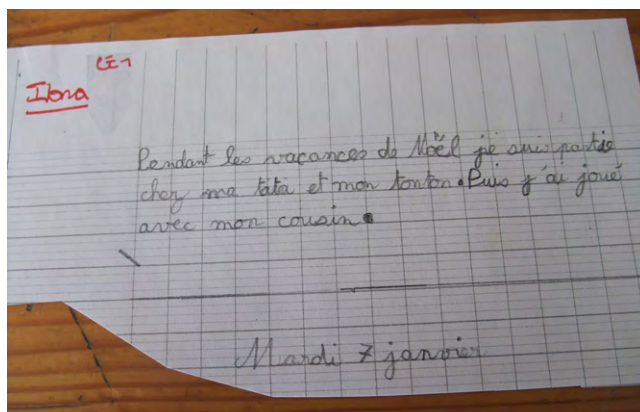 CE1
Ilona
Pendant les vacances de Noël je suis partie
chez ma tata et mon tonton. Puis j'ai joué
avec mon cousin.
Mardi 7 janvier